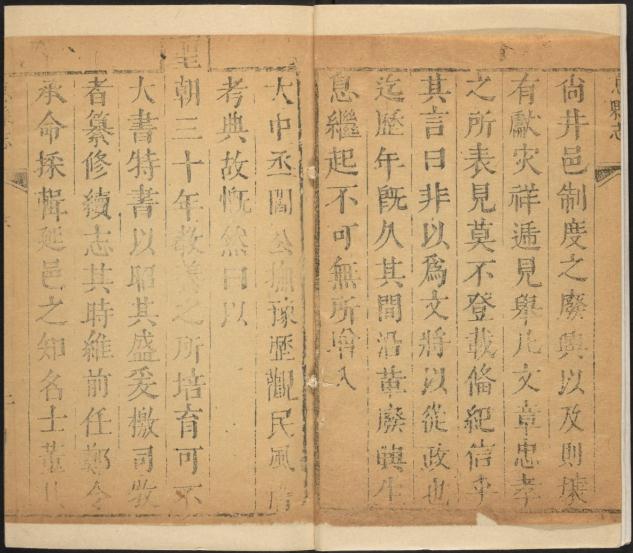 尙井邑制度之廢興以及則壤
有獻灾祥遞見舉凡文章忠孝
之所表見莫不登載俻紀信乎
其言曰非以爲文將以從政也
迄歷年旣久其間沿革廢興生
息繼起不可無所增入
大中丞閻公撫豫歷觀民風
考典故慨然曰以
聖朝三十年敎養之所培育可不
大書特書以昭其盛爰檄司牧
者纂修續志其時維前任鄭令
承命採輯延邑之知名士董
縣志